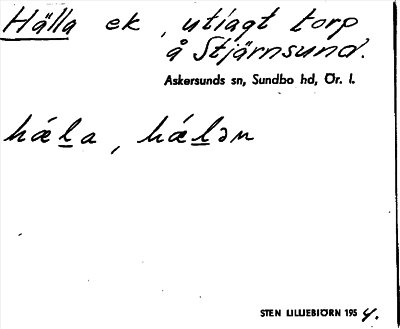 Hälla ek, utlagt torp
å Stjärnsund.
Askersunds sn, Sundbo hd, Ör. l.
hǽl̲a, hǽl̲ən
STEN LILLIEBIÖRN 1954.